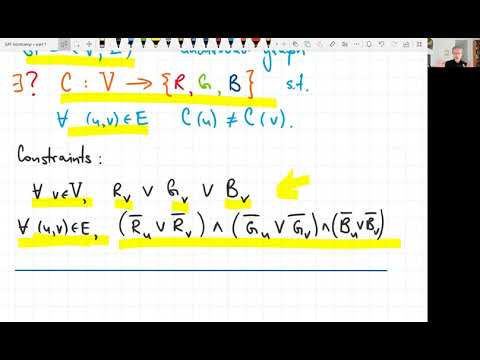 SAT bootcamp - part 1
G = (V, E) undirected graph
∃? C : V → {R, G, B} s.t.
∀ (u,v) ∈ E C(u) ≠ C(v).
Constraints :
∀ v∈V, R_v ∨ G_v ∨ B_v
∀ (u,v)∈E, (R̅_u ∨ R̅_v) ∧ (G̅_u ∨ G̅_v) ∧ (B̅_u ∨ B̅_v)